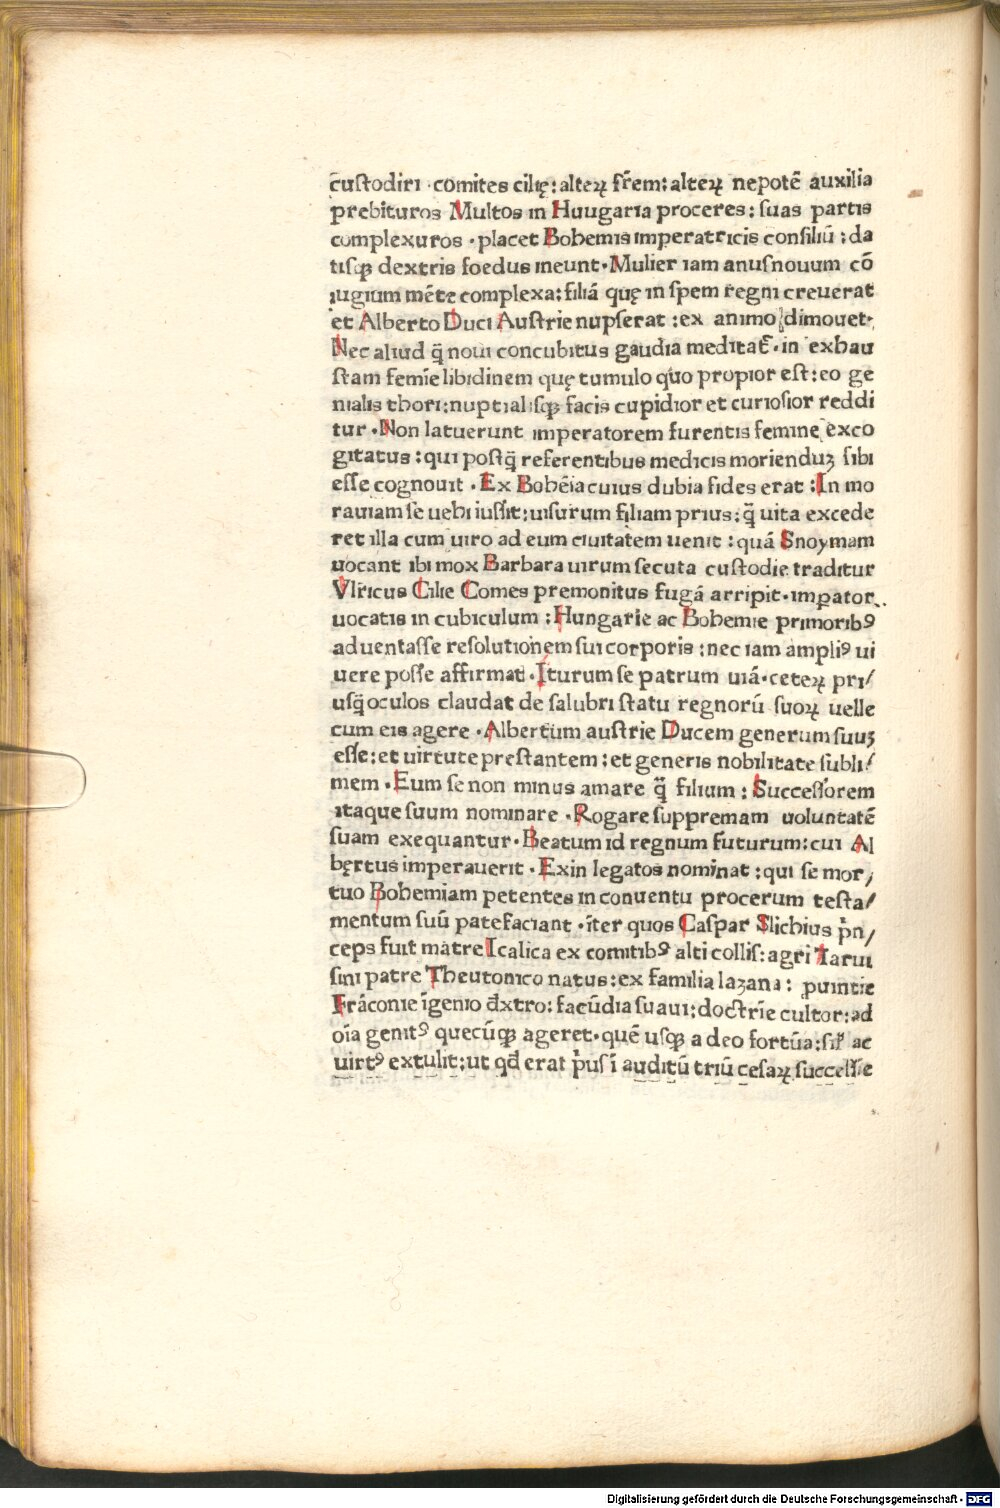 c̄uſtodiri · comites cilię: alteꝝ fr̄em: alteꝝ nepotē auxilia
prebituros Multos in Huugaria proceres: ſuas partis
complexuros · placet Bohemis imperatricis conſiliū : da
tiſꝗ dextris foedus ineunt · Mulier iam anuſ nouum cō
iugium mēte complexa: filiā quę in ſpem regni creuerat
et Alberto Duci Auſtrie nupſerat : ex animo dimouet ·
Nec aliud q̄ noui concubitus gaudia meditat̄ · in exhau
ſtam femīe libidinem quę tumulo quo propior eſt: eo ge
nialis thori: nuptialiſꝗ facis cupidior et curioſior reddi
tur · Non latuerunt imperatorem furentis femine exco
gitatus : qui poſtq̄ referentibus medicis morienduꝫ ſibi
eſſe cognouit · Ex Bohēia cuius dubia fides erat : In mo
rauiam ſe uehi iuſſit: uiſurum filiam prius: q̄ uita excede
ret illa cum uiro ad eum ciuitatem uenit : quā Snoymam
uocant ibi mox Barbara uirum ſecuta cuſtodie traditur
Vlricus Cilie Comes premonitus fugā arripit · imꝑator
uocatis in cubiculum : Hungarie ac Bohemie primoribꝰ
aduentaſſe reſolutionem ſui corporis : nec iam ampliꝰ ui
uere poſſe affirmat · Iturum ſe patrum uiā · ceteꝝ pri/
uſq̄ oculos claudat de ſalubri ſtatu regnorū ſuoꝝ uelle
cum eis agere · Albertum auſtrie Ducem generum ſuuꝫ
eſſe: et uirtute preſtantem: et generis nobilitate ſubli/
mem · Eum ſe non minus amare q̄ filium : Succeſſorem
itaque ſuum nominare · Rogare ſuppremam uoluntatē
ſuam exequantur · Beatum id regnum futurum: cui Al
bęrtus imperauerit · Exin legatos nominat : qui ſe mor/
tuo Bohemiam petentes in conuentu procerum teſta/
mentum ſuū patefaciant · īter quos Caſpar Slichius pͥn/
ceps fuit matre Icalica ex comitibꝰ alti colliſ: agri Tarui
ſini patre Theutonico natus: ex familia lazana: ꝓuintie
Frāconie īgenio dextro: facūdia ſuaui: doctrīe cultor: ad
oīa genitꝰ quecūꝗ ageret · quē uſꝗ adeo fortūa: ſiꝉ ac
uirtꝰ extulit: ut qd̄ erat pͥus ī auditū triū ceſaꝝ ſucceſſie
Digitalisierung gefördert durch die Deutsche Forschungsgemeinschaft · DFG